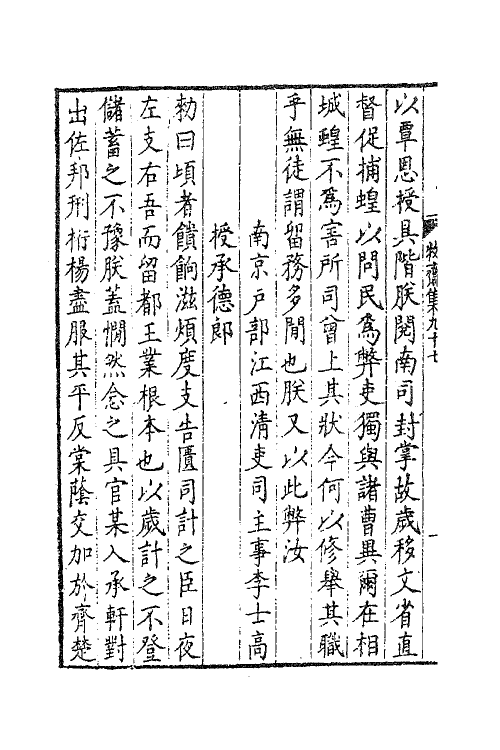 牧齋集九十七
一
以覃恩授具階朕閱南司封掌故歲移文省直
督促捕蝗以問民爲弊吏獨與諸曹異爾在相
城蝗不爲害所司曾上其狀今何以修舉其職
乎無徒謂留務多閒也朕又以此弊汝
南京戶部江西清吏司主事李士高
授承德郎
勑曰頃者饋餉滋煩度支告匱司計之臣日夜
左支右吾而留都王業根本也以歲計之不登
儲蓄之不豫朕蓋憪然念之具官某入承軒對
出佐邦刑桁楊盡服其平反棠蔭交加於齊楚